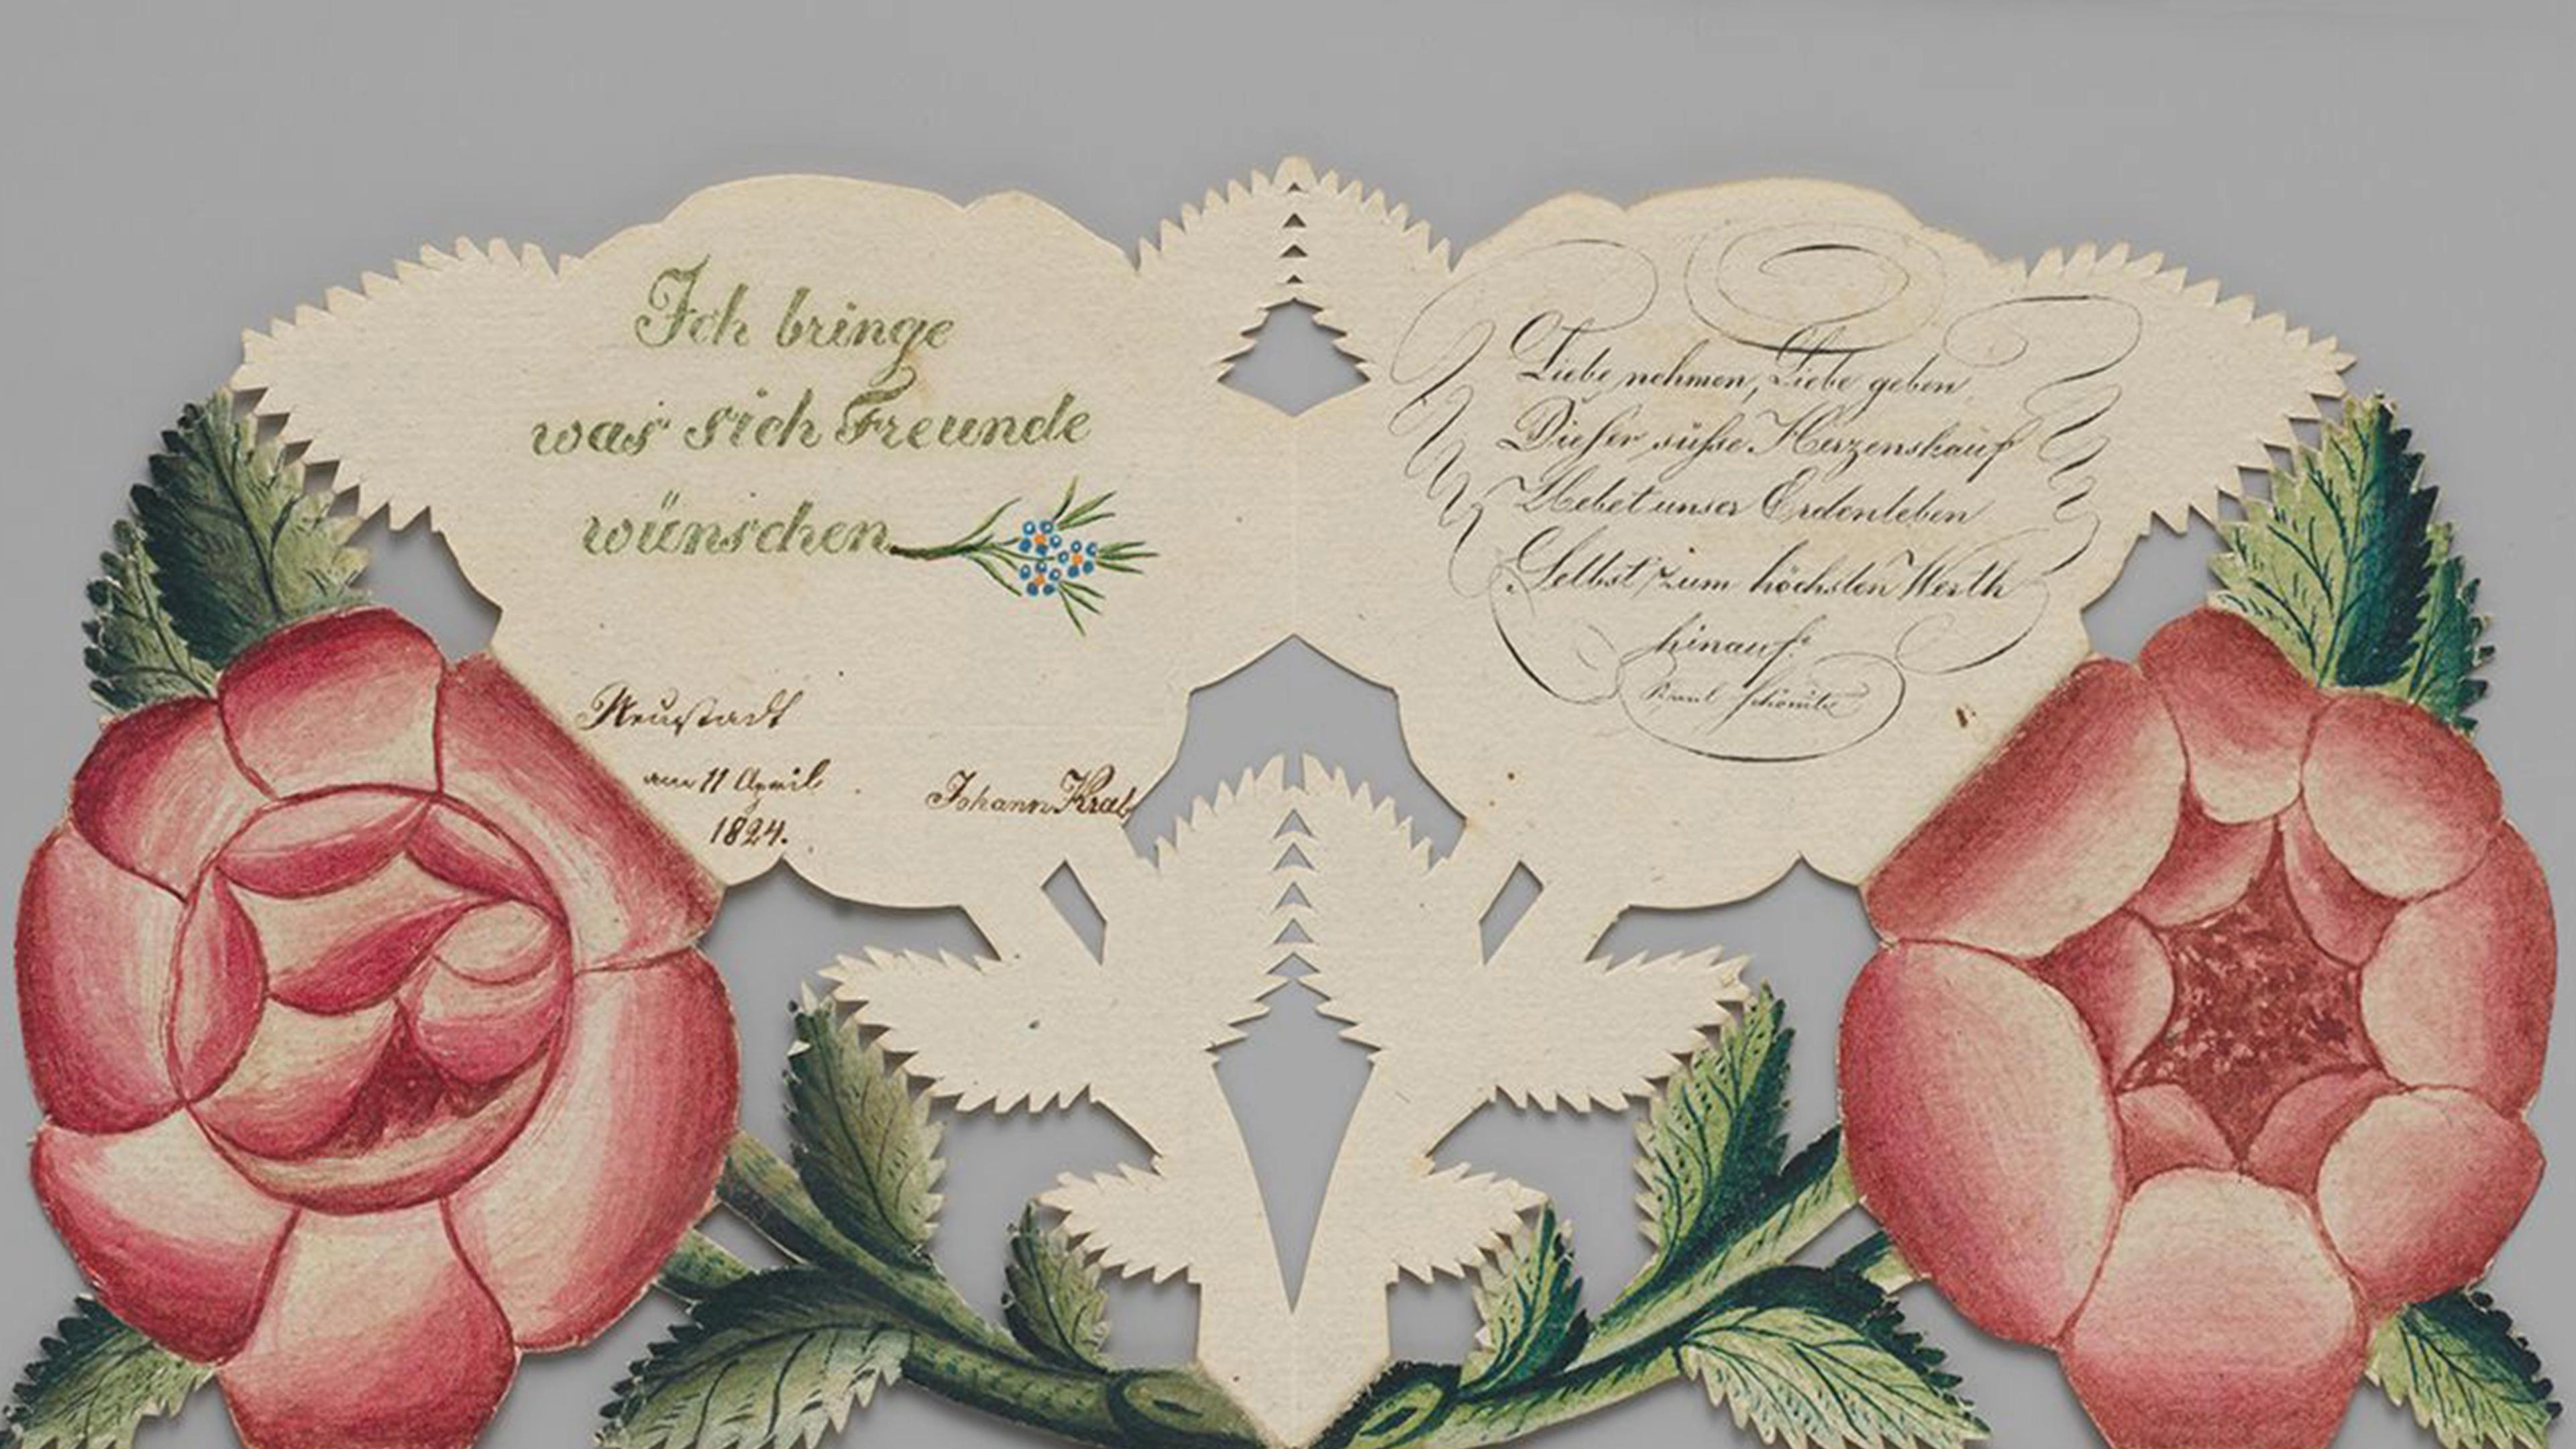 Ich bringe
was sich Freunde
wünschen
Neustadt
am 11 April
1824.
Johann Krab
Liebe nehmen, Liebe geben,
Dieser süsse Herzenskauf
Hebet unser Erdenleben
Selbst zum höchsten Werth
hinauf.